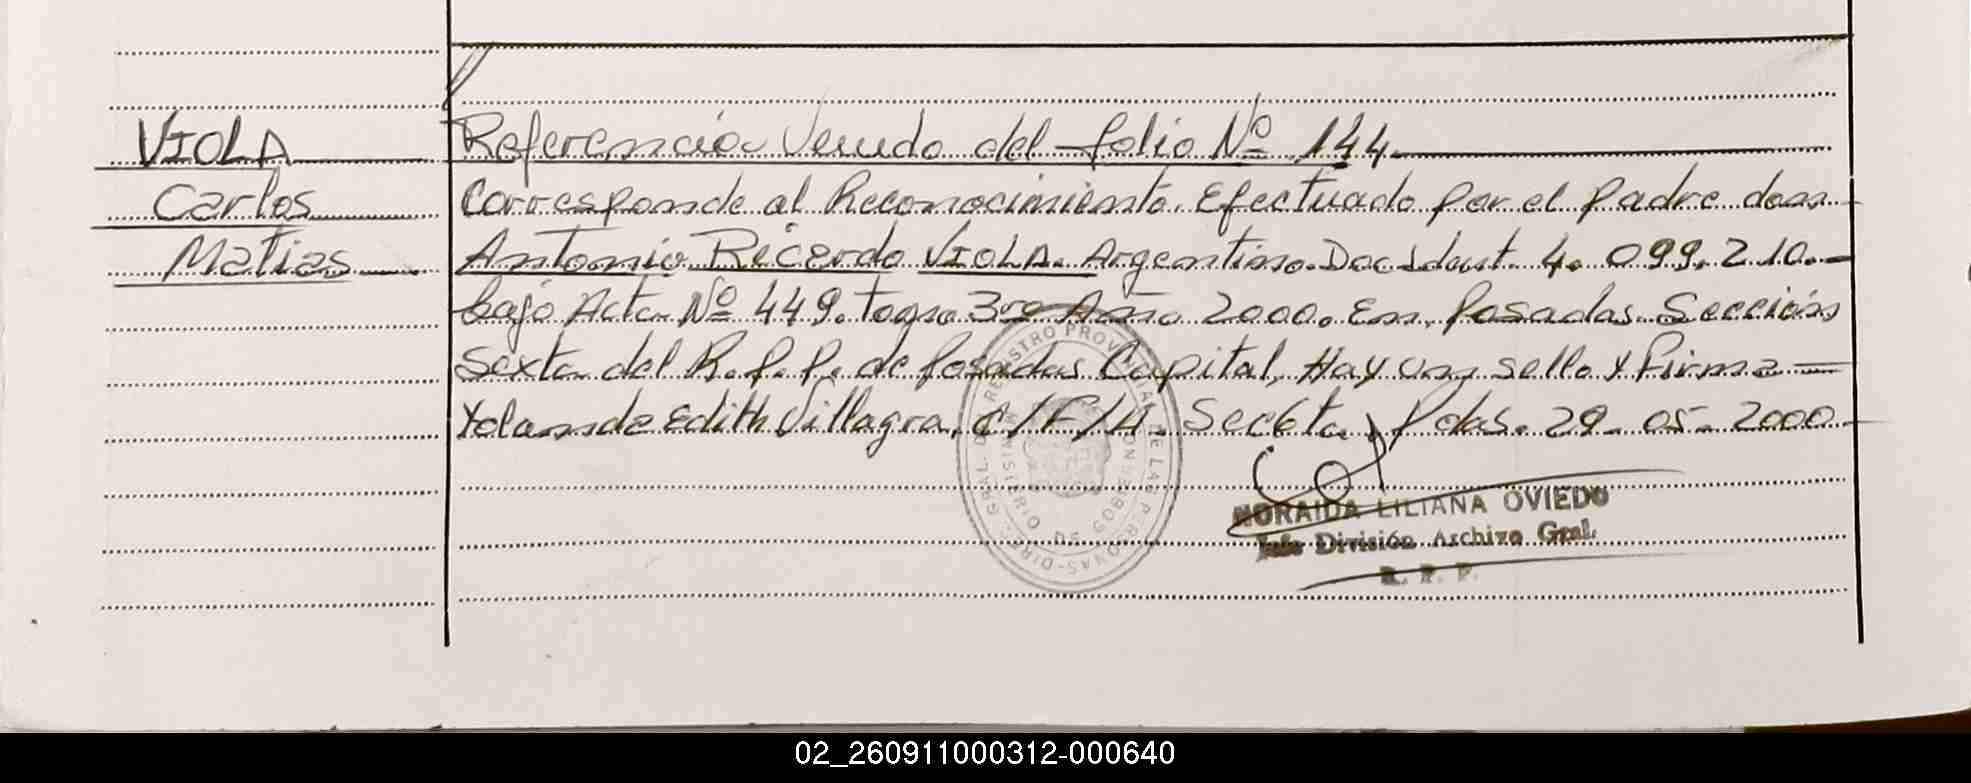 VIOLA
Carlos
Matias
Referencia Venido del folio Nº 144.
Corresponde al Reconocimiento. Efectuado por el padre don
Antonio Ricardo VIOLA. Argentino. Doc Ident. 4.099.210.-
bajo Acta Nº 449. tomo 3ro Año 2000. En Posadas. Sección
Sexta del R.P.P. de Posadas Capital, Hay un sello y Firma -
Yolanda Edith Villagra, Pdas. 29-05-2000
DIREC. GRAL. DEL REGISTRO PROVINCIAL DE LAS PERSONAS
NORAIDA LILIANA OVIEDO
Jefe División Archivo Gral.
R. P. P.
02_260911000312-000640